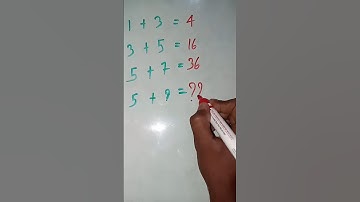 1 + 3 = 4
3 + 5 = 16
5 + 7 = 36
5 + 9 = ??